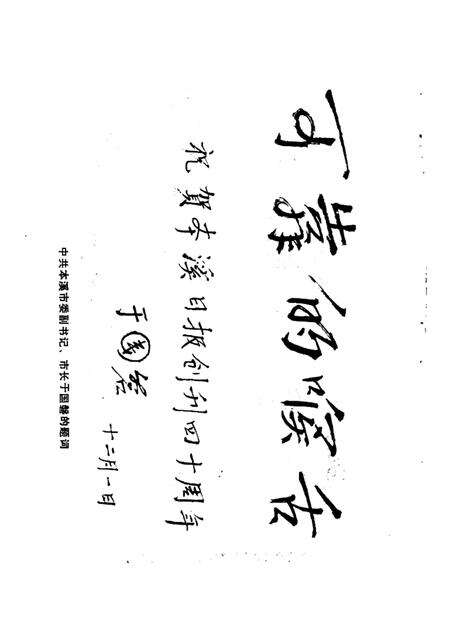 可靠的喉舌
祝贺本溪日报创刊四十周年
于国磐
十二月一日
中共本溪市委副书记、市长于国磐的题词